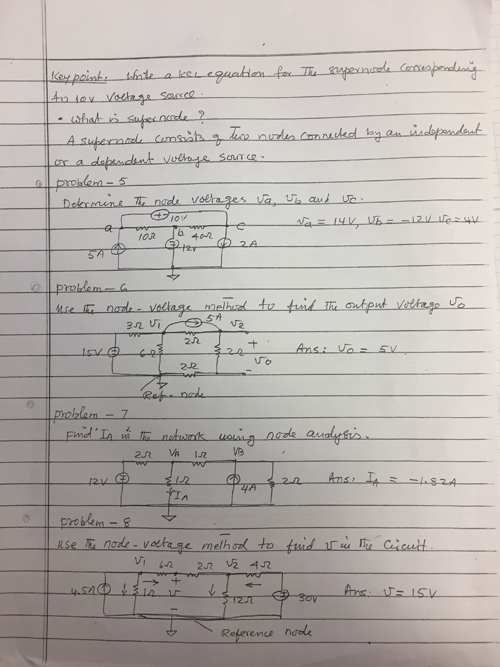 Key point: Write a KCL equation for the supernode corresponding
to 10V voltage source.
• What is supernode?
A supernode consists of two nodes connected by an independent
or a dependent voltage source.
problem-5
Determine the node voltages va, vb and vc.
10V
a 10Ω b 40Ω c
5A 12V 2A
va = 14V, vb = -12V vc = 4V
problem-6
Use the node-voltage method to find the output voltage vo
3Ω V1 5A V2
2Ω
15V 6Ω 2Ω + vo -
2Ω
Ans: vo = 5V
Ref. node
problem-7
Find IA in the network using node analysis.
2Ω VA 1Ω VB
12V 1Ω 4A 2Ω
IA
Ans: IA = -1.82A
problem-8
Use the node-voltage method to find v in the circuit.
V1 6Ω 2Ω V2 4Ω
4.5A 1Ω + v - 12Ω 30V
Ans: v = 15V
Reference node